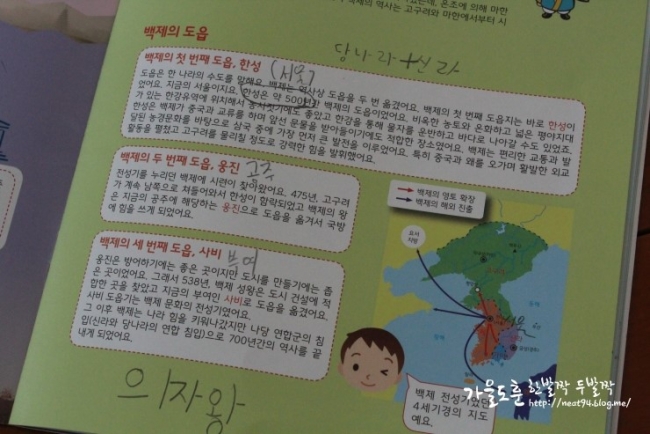 었는데, 온조에 의해 마한
역사는 고구려와 마한에서부터 시
백제의 도읍
당나라+신라
백제의 첫 번째 도읍, 한성 (서울)
도읍은 한 나라의 수도를 말해요. 백제는 역사상 도읍을 두 번 옮겼어요. 백제의 첫 번째 도읍지는 바로 한성이
었어요. 지금의 서울이지요. 한성은 약 500년간 백제의 도읍이었어요. 비옥한 농토와 온화하고 넓은 평야지대
가 있는 한강유역에 위치해서 농사짓기에도 좋았고 한강을 통해 물자를 운반하고 바다로 나아갈 수도 있었죠.
한성은 백제가 중국과 교류를 하며 앞선 문물을 받아들이기에도 적합한 장소였어요. 백제는 편리한 교통과 발
달된 농경문화를 바탕으로 삼국 중에 가장 먼저 큰 발전을 이루었어요. 특히 중국과 왜를 오가며 활발한 외교
활동을 펼쳤고 고구려를 물리칠 정도로 강력한 힘을 발휘했어요.
백제의 두 번째 도읍, 웅진 공주
전성기를 누리던 백제에 시련이 찾아왔어요. 475년, 고구려
가 계속 남쪽으로 쳐들어와서 한성이 함락되었고 백제의 왕
은 지금의 공주에 해당하는 웅진으로 도읍을 옮겨서 국방
에 힘을 쓰게 되었어요.
백제의 세 번째 도읍, 사비 부여
웅진은 방어하기에는 좋은 곳이지만 도시를 만들기에는 좁
은 곳이었어요. 그래서 538년, 백제 성왕은 도시 건설에 적
합한 곳을 찾았고 지금의 부여인 사비로 도읍을 옮겼어요.
사비 도읍기는 백제 문화의 전성기였어요.
그 이후 백제는 나라 힘을 키워나갔지만 나당 연합군의 침
입(신라와 당나라의 연합 침입)으로 700년간의 역사를 끝
내게 되었어요.
백제의 영토 확장
백제의 해외 진출
요서
지방
의자왕
백제 전성기였던
4세기경의 지도
예요.
가을도훈 한발짝 두발짝
http://neat94.blog.me/